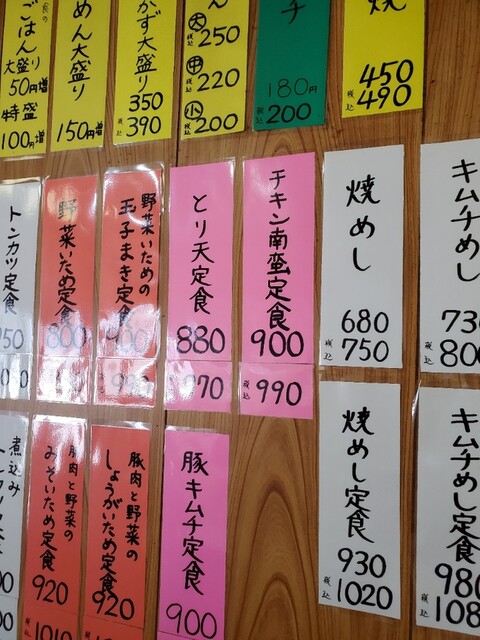 食の
ごはん
大盛り
50円増
特盛
100円増
めん大盛り
150円増
かず大盛り
350
税込 390
ん
大 250
税込
中 220
税込
小 200
税込
チ
180円
税込 200
焼
450
税込 490
トンカツ定食
950
野菜いため定食
800
野菜いための
玉子まき定食
900
990
とり天定食
880
税込 970
チキン南蛮定食
900
税込 990
焼めし
680
税込 750
キムチめし
730
税込 800
煮込み
豚肉と野菜の
みそいため定食
920
1010
豚肉と野菜の
しょうがいため定食
920
税込
豚キムチ定食
900
税込
焼めし定食
930
税込 1020
キムチめし定食
980
税込 108